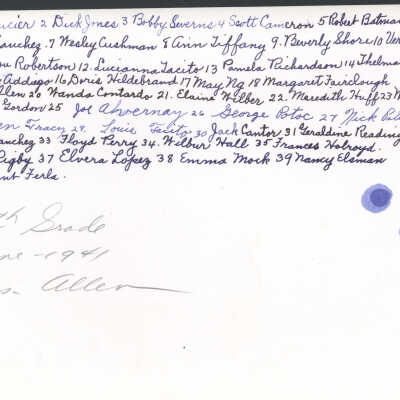 ucier 2 Dick Jones 3 Bobby Severns 4 Scott Cameron 5 Robert Batman
anchez. 7 Wesley Cushman 8 Ann Tiffany 9. Beverly Shore 10 Ver
ou Robertson 12. Lucianna Tacito 13 Pamela Richardson 14 Thelma
Addiego 16 Doris Hildebrand 17 May Ng 18 Margaret Fairclough
Allen 20 Wanda Contardo 21. Elaine Wilber 22. Meredith Huff 23
Gordon 25 Joe Ahvernay 26 George Bloc 27 Nick
en Tracy 29. Louis Tacito 30 Jack Cantor 31 Geraldine Reading
anchez 33 Floyd Perry 34. Wilbur Hall 35 Frances Holroyd.
Rigby 37 Elvera Lopez 38 Emma Mock 39 Nancy Elsman
Ferla.
th Grade
ne - 1941
s. Allen